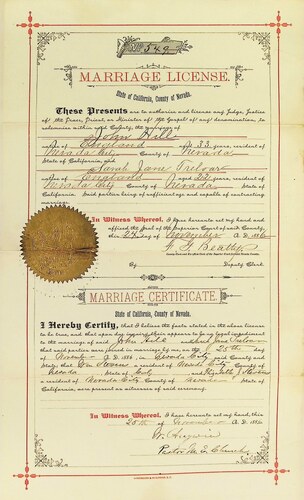 549
MARRIAGE LICENSE.
State of California, County of Nevada.
These Presents are to authorize and license any Judge, Justice
of the Peace, Priest, or Minister of the Gospel of any denomination, to
solemnize within said County, the marriage of
John Hill
England of 33 years, resident
Nevada City, County of Nevada
State of California, and
Jane
England aged years, resident
Nevada City County of Nevada State of
California. Said parties being of sufficient age and capable of contracting
In Witness Whereof, I have hereunto set my hand and
affixed the Seal of the Superior Court of said County,
this 24 day of November A.D. 1886
Beatty
By Deputy Clerk
MARRIAGE CERTIFICATE.
State of California, County of Nevada.
I Hereby Certify, that I believe the facts stated in the above license
to be true, and that upon due inquiry there appears to be no legal impediment
to the marriage of said John Hill and Jane
that said parties were joined in marriage by me, on the 25th day
of November A.D. 1886, in Nevada City said County and
State; that a resident of Nevada City County of
Nevada State of and
a resident of Nevada City County of State of
California, were present as witnesses of said ceremony.
In Witness Whereof, I have hereunto set my hand, this
25th of November A.D. 1886
Pastor M.E. Church